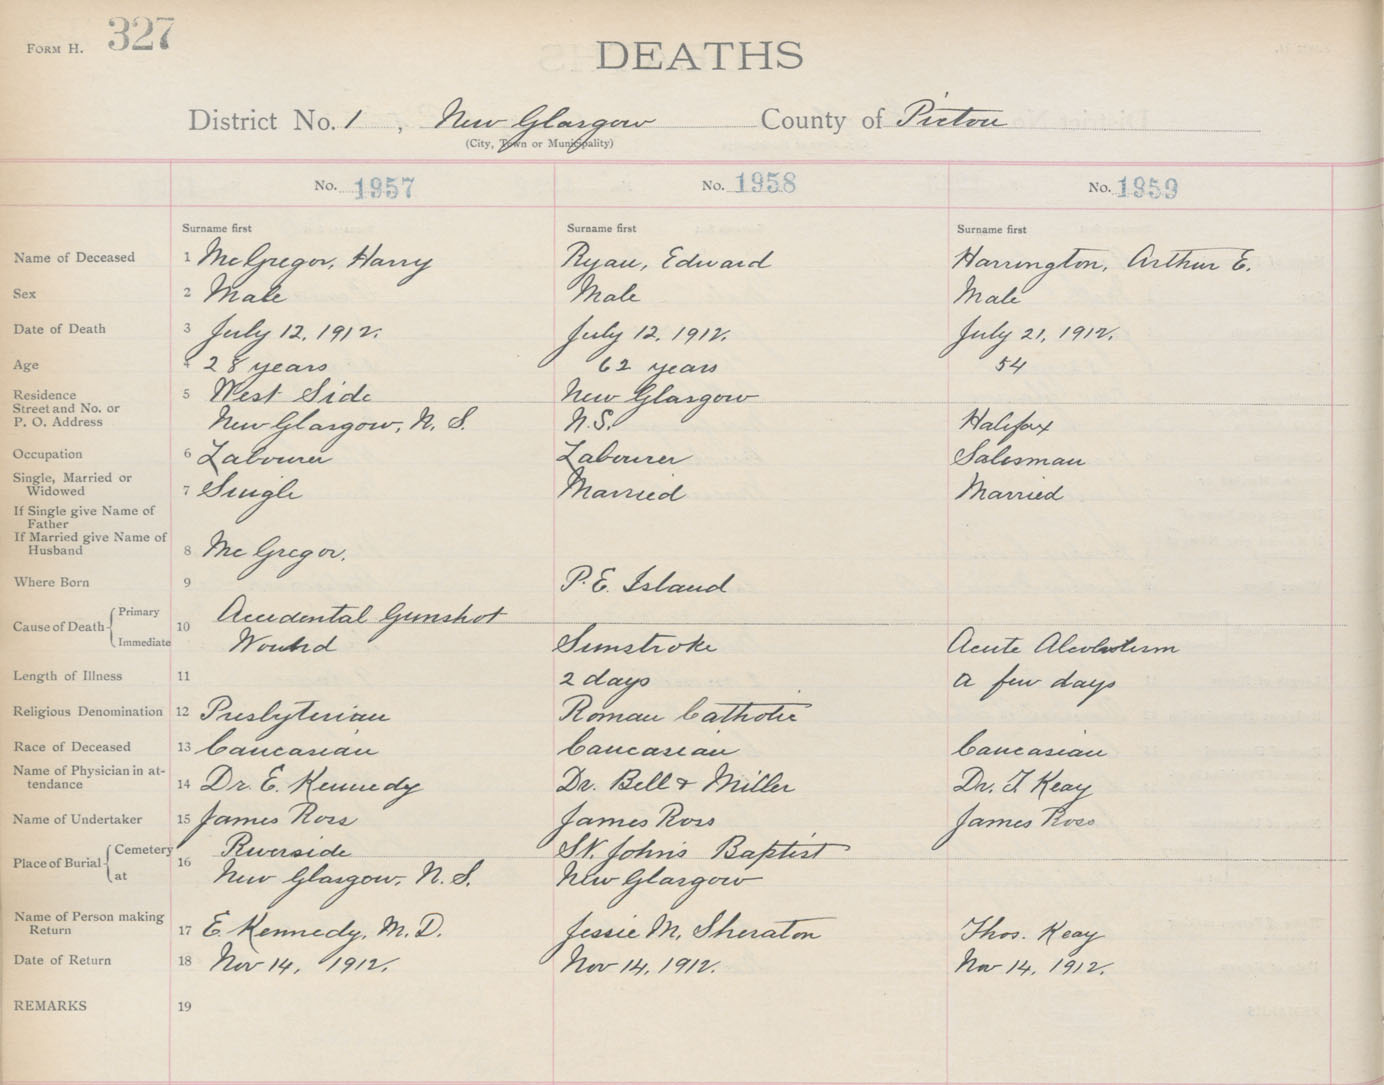 FORM H. 327
DEATHS
District No. 1, New Glasgow County of Pictou
(City, Town or Municipality)
No. 1957 No. 1958 No. 1959
Surname first Surname first Surname first
Name of Deceased 1 McGregor, Harry Ryan, Edward Harrington, Arthur E.
Sex 2 Male Male Male
Date of Death 3 July 12, 1912. July 12, 1912. July 21, 1912.
Age 4 28 years 62 years 54
Residence 5 West Side New Glasgow
Street and No. or
P. O. Address New Glasgow, N. S. N.S. Halifax
Occupation 6 Labourer Labourer Salesman
Single, Married or
Widowed 7 Single Married Married
If Single give Name of
Father
If Married give Name of
Husband 8 McGregor.
Where Born 9 P. E. Island
Cause of Death Primary 10 Accidental Gunshot
Immediate Wound Sunstroke Acute Alcoholism
Length of Illness 11 2 days a few days
Religious Denomination 12 Presbyterian Roman Catholic
Race of Deceased 13 Caucasian Caucasian Caucasian
Name of Physician in at-
tendance 14 Dr. E. Kennedy Dr. Bell & Miller Dr. T Keay
Name of Undertaker 15 James Ross James Ross James Ross
Place of Burial Cemetery 16 Riverside St. John's Baptist
at New Glasgow, N. S. New Glasgow
Name of Person making
Return 17 E. Kennedy, M. D. Jessie M. Sheraton Thos. Keay
Date of Return 18 Nov 14, 1912. Nov 14, 1912. Nov 14, 1912.
REMARKS 19